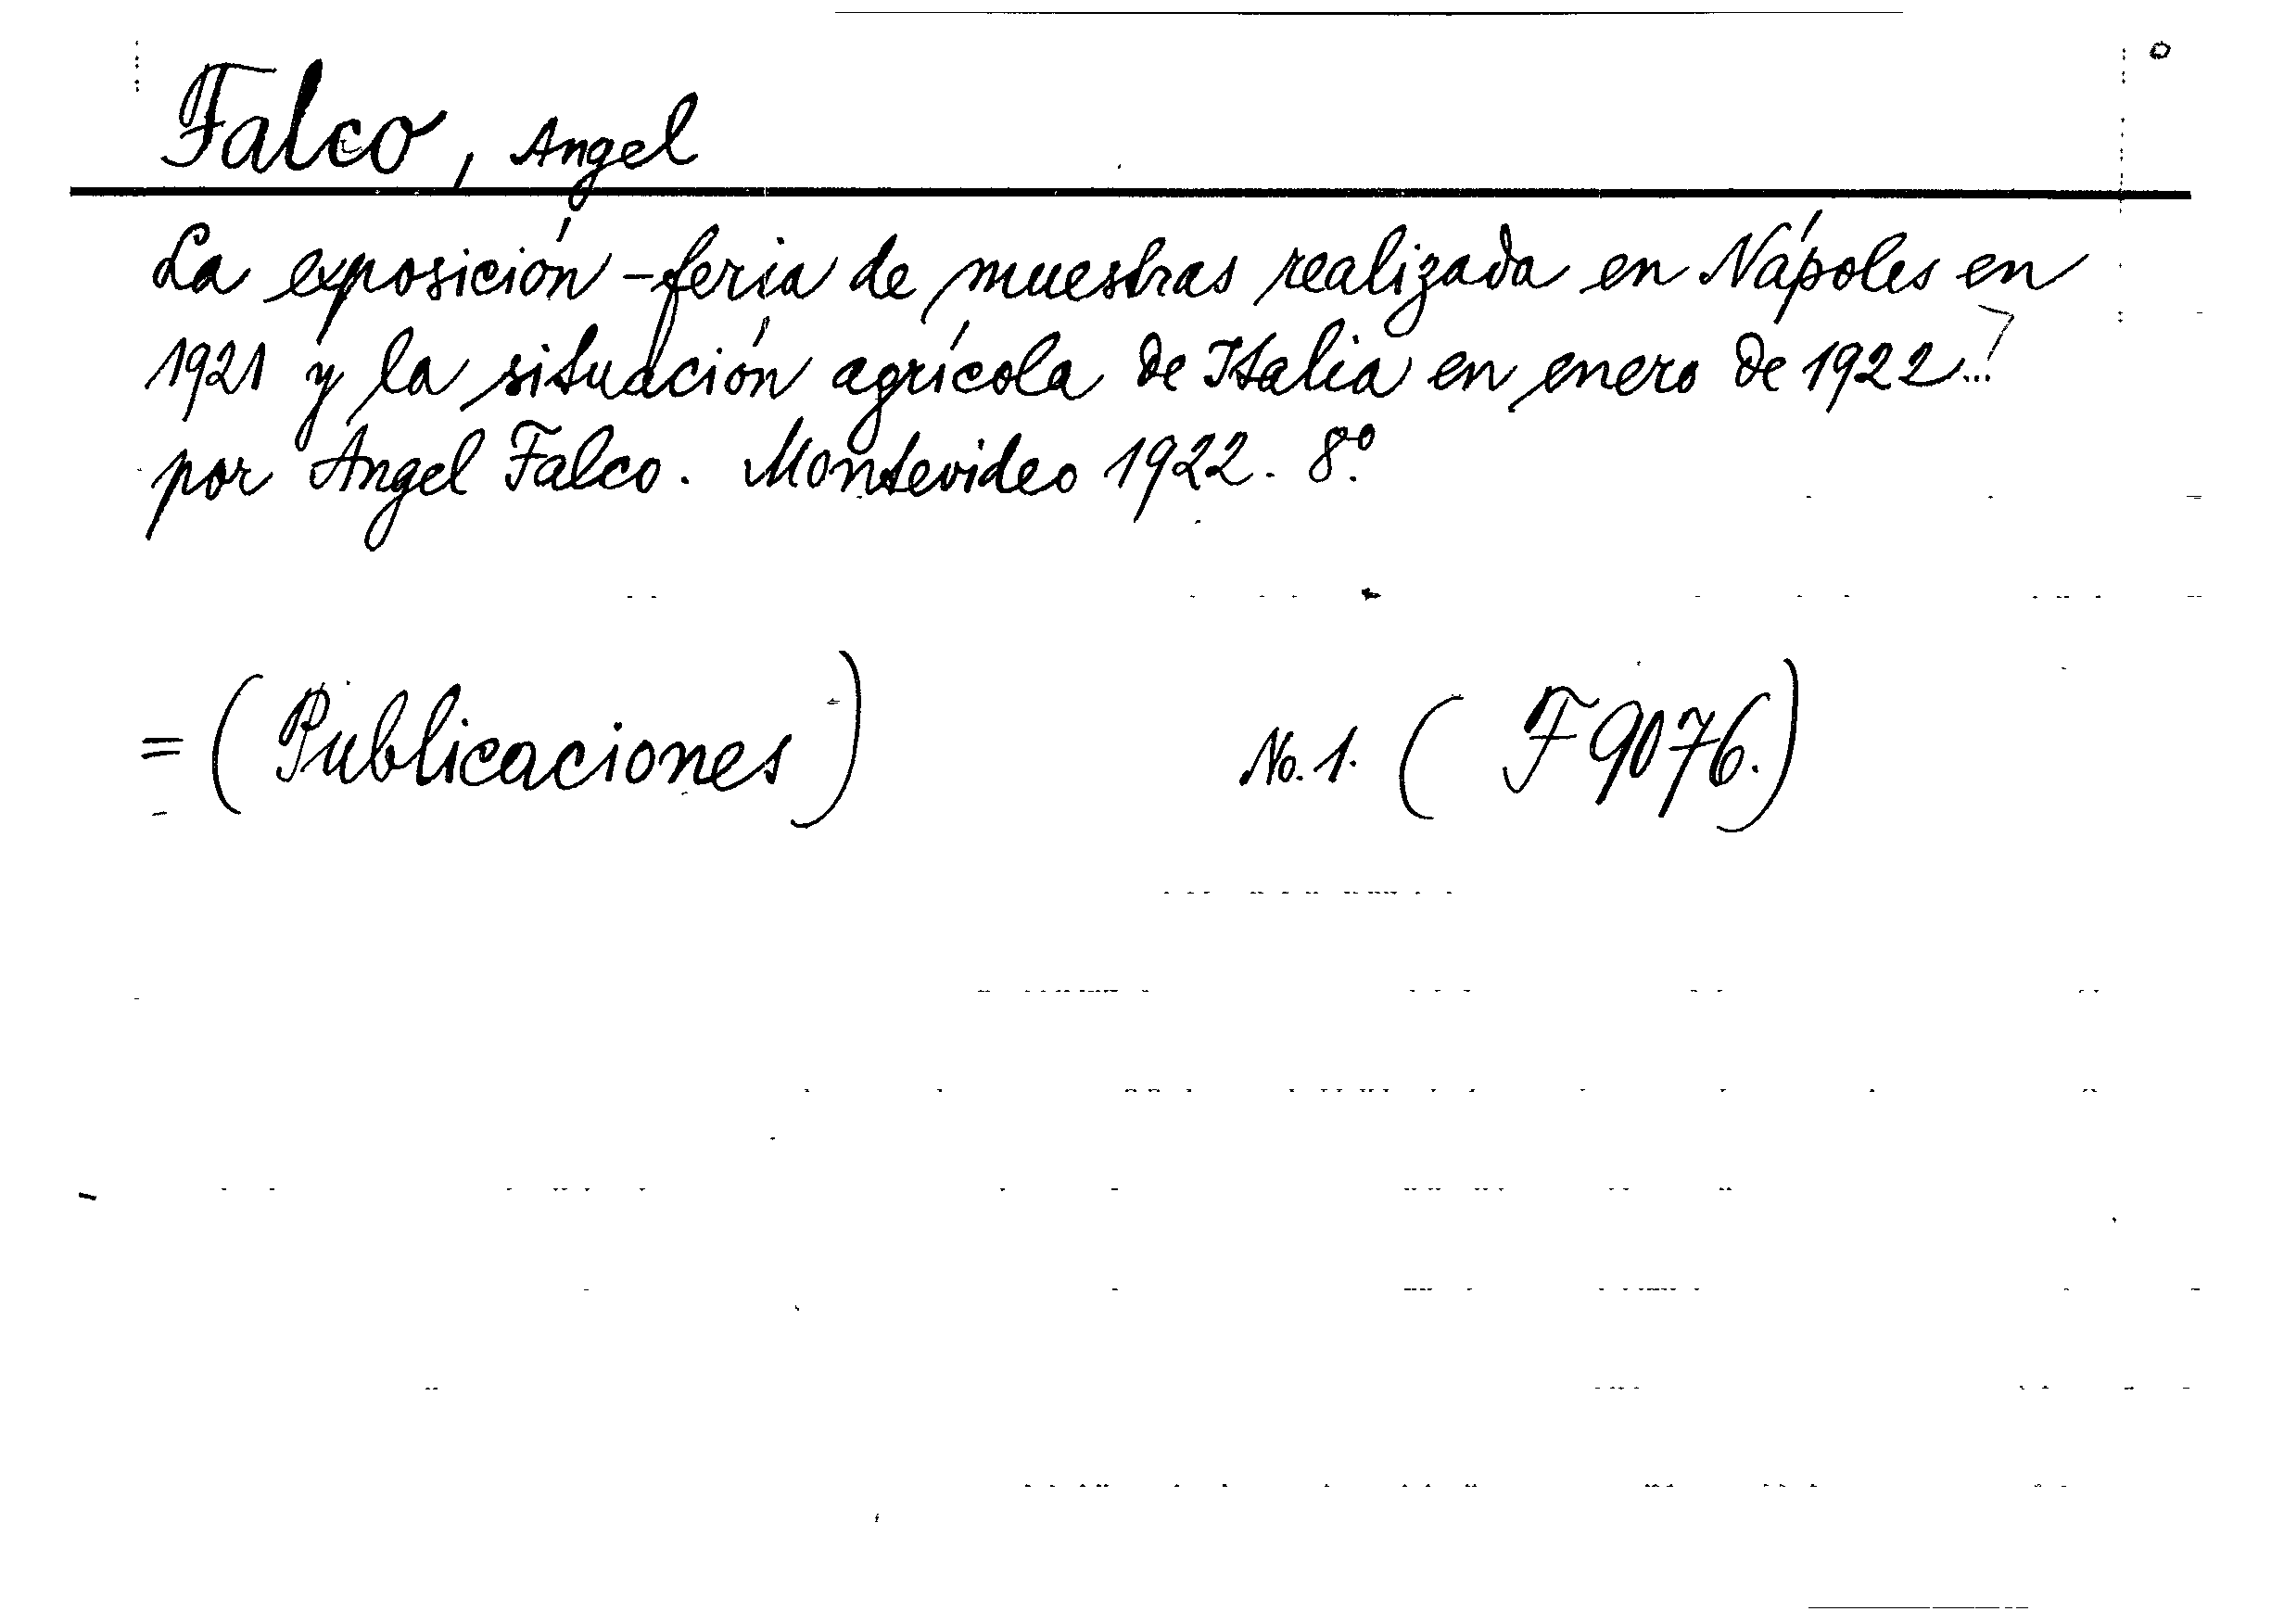 Falco, Angel
La exposición-feria de muestras realizada en Nápoles en
1921 y la situación agrícola de Italia en enero de 1922...
por Ángel Falco. Montevideo 1922. 8º.
= (Publicaciones) No. 1. (F 9076.)